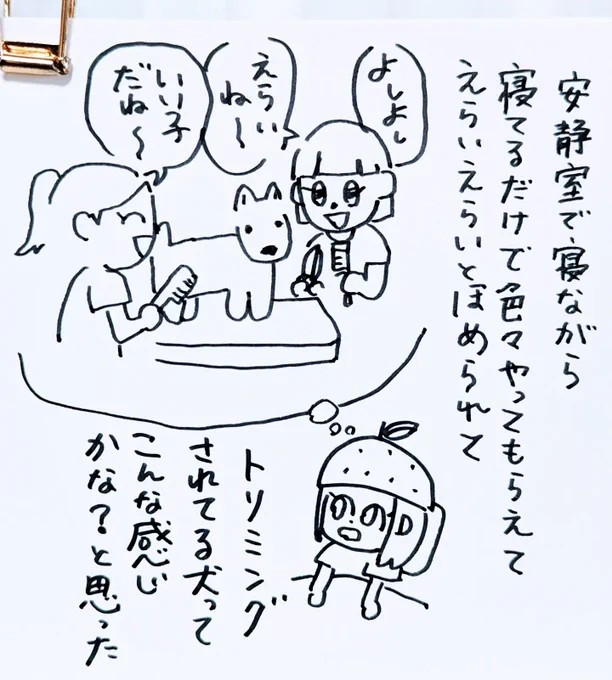 安静室で寝ながら
寝てるだけで色々やってもらえて
えらいえらいとほめられて
よしよし
えらい
ね〜
いい子
だね〜
トリミング
されてる犬って
こんな感じ
かな?と思った